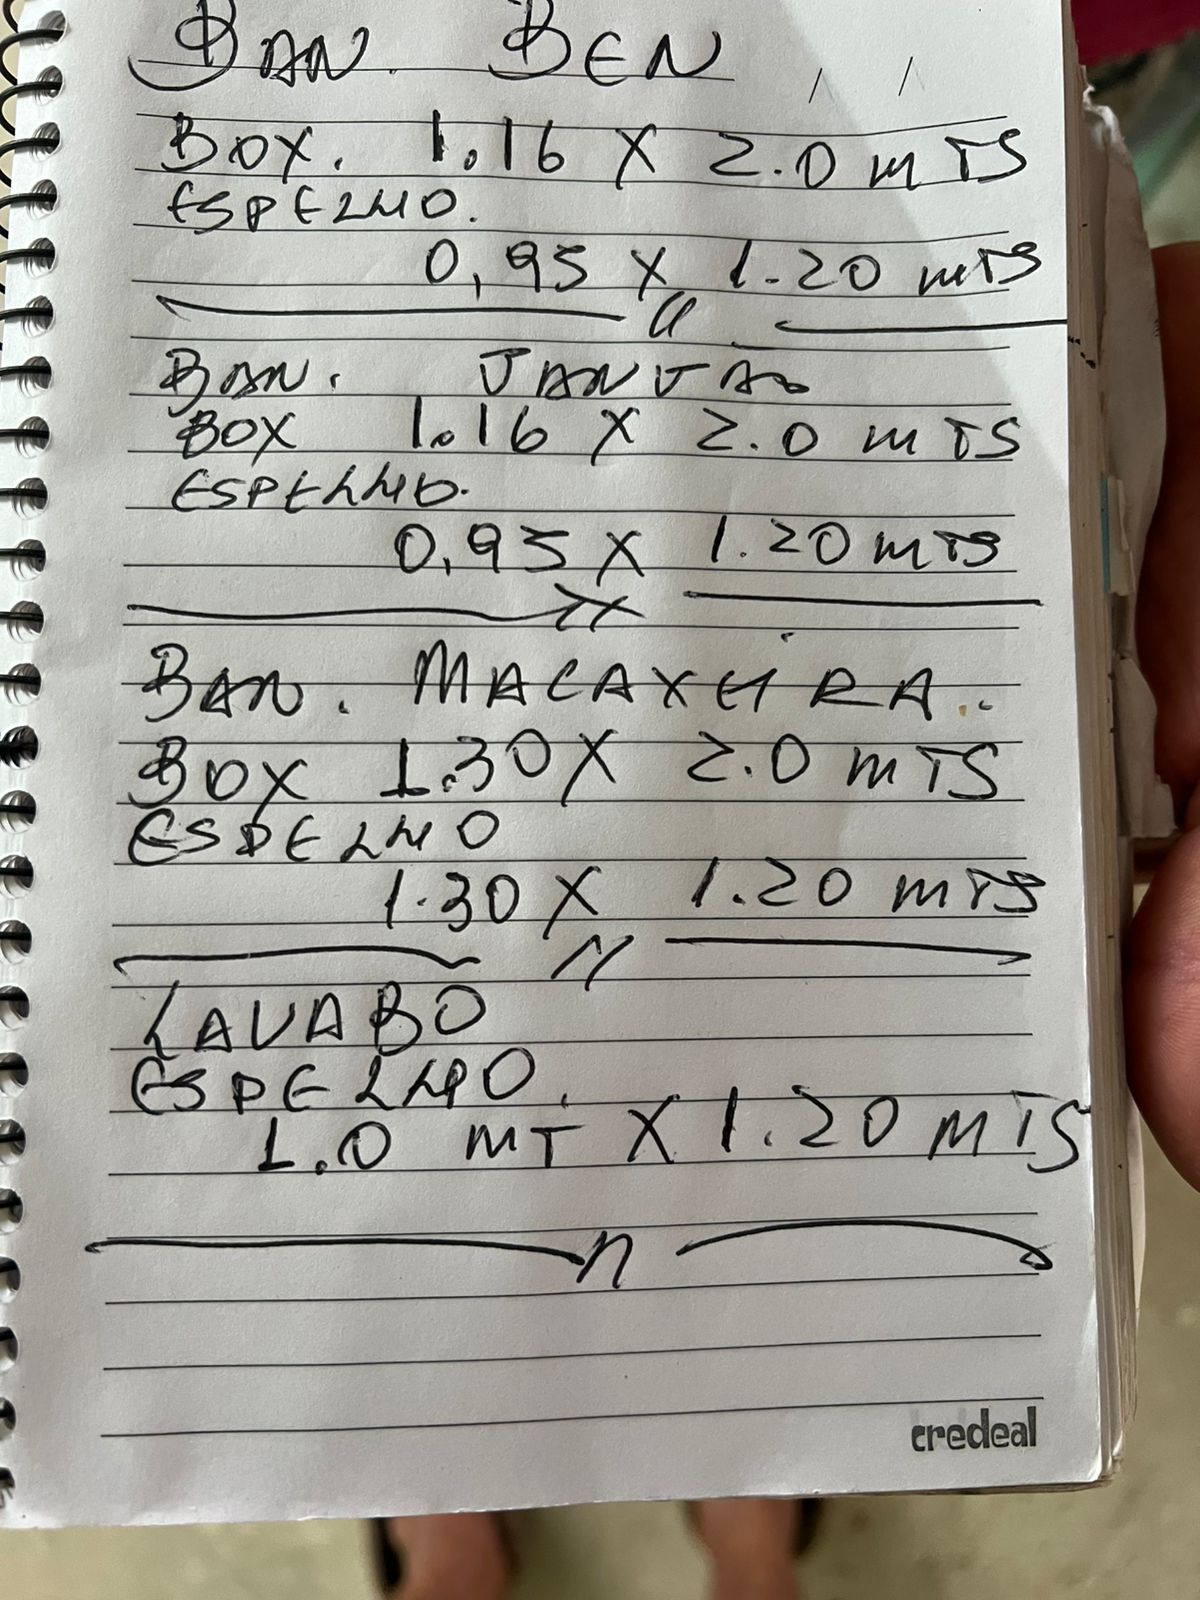 BAN. BEN
BOX. 1.16 X 2.0 MTS
ESPELHO.
0,95 X 1.20 MTS
BAN.
BOX 1.16 X 2.0 MTS
ESPELHO.
0,95 X 1.20 MTS
BAN. MACAXEIRA.
BOX 1.30 X 2.0 MTS
ESPELHO
1.30 X 1.20 MTS
LAVABO
ESPELHO.
1.0 MT X 1.20 MTS
credeal